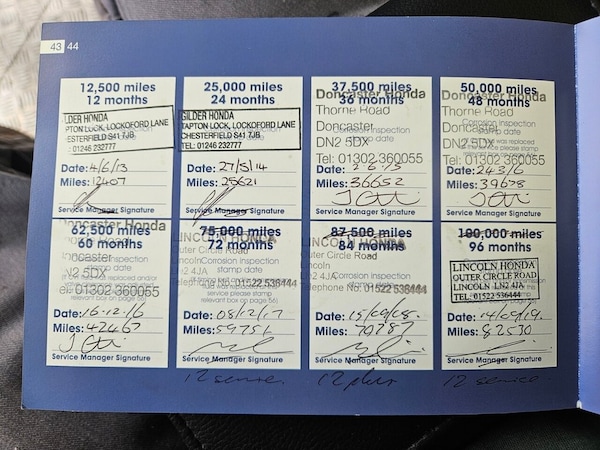 43 44
12,500 miles
12 months
LDER HONDA
PTON LOCK, LOCKOFORD LANE
ESTERFIELD S41 7JB
: 01246 232777
Date: 4/6/13
Miles: 12407
Service Manager Signature
25,000 miles
24 months
GILDER HONDA
TAPTON LOCK, LOCKOFORD LANE
CHESTERFIELD S41 7JB
TEL: 01246 232777
Date: 27/5/14
Miles: 25621
Service Manager Signature
37,500 miles
36 months
Doncaster Honda
Thorne Road
Doncaster
DN2 5DX
Tel: 01302 360055
Corrosion Inspection
stamp date
Date: 2-6-15
Miles: 36652
Service Manager Signature
50,000 miles
48 months
Doncaster Honda
Thorne Road
Doncaster
DN2 5DX
Tel: 01302 360055
Corrosion Inspection
stamp date
Date: 243/6
Miles: 39678
Service Manager Signature
62,500 miles
60 months
Doncaster Honda
oncaster
N2 5DX
el: 01302 360055
Date: 16-12-16
Miles: 42467
Service Manager Signature
75,000 miles
72 months
LINCOLN HONDA
Outer Circle Road
Lincoln
LN2 4JA
Telephone No: 01522 536444
Corrosion Inspection
stamp date
relevant box on page 56)
Date: 08/12/17
Miles: 59751
Service Manager Signature
12 service.
87,500 miles
84 months
LINCOLN HONDA
Outer Circle Road
Lincoln
LN2 4JA
Telephone No: 01522 536444
Corrosion Inspection
stamp date
Miles: 70287
Service Manager Signature
12 plus
100,000 miles
96 months
LINCOLN HONDA
OUTER CIRCLE ROAD
LINCOLN LN2 4JA
TEL: 01522 536444
Date: 14/09/19.
Miles: 82530
Service Manager Signature
12 service.